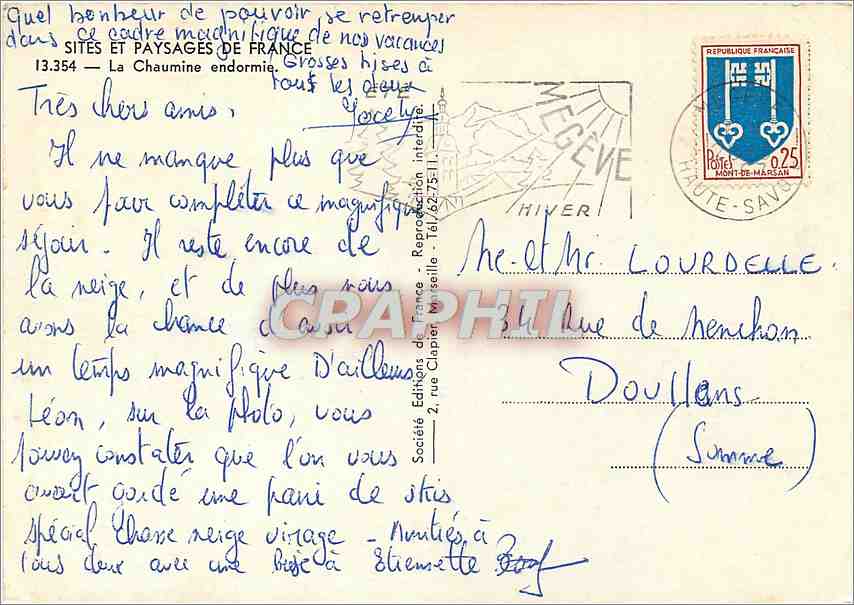 Quel bonheur de pouvoir se retremper
dans ce cadre magnifique de nos vacances
Grosses bises à
tous les deux
SITES ET PAYSAGES DE FRANCE
13.354 — La Chaumine endormie.
Très chers amis,
Il ne manque plus que
vous pour compléter ce magnifique
séjour. Il reste encore de
la neige, et de plus nous
avons la chance d'avoir
un temps magnifique D'ailleurs
Léon, sur la photo, vous
pouvez constater que l'on vous
avait gardé une paire de skis
spécial chasse neige virage - Amitiés à
tous deux avec une bise à Etiennette
Société Editions de France - Reproduction interdite.
2, rue Clapier, Marseille - Tél. 62-75-11.
ÉTÉ
MEGÈVE
HIVER
REPUBLIQUE FRANÇAISE
Postes 0,25
MONT-DE-MARSAN
HAUTE-SAVOIE
Me. et Mr. LOURDELLE.
34 Rue de Menchon
Doullens
(Somme)
CPAPHIL